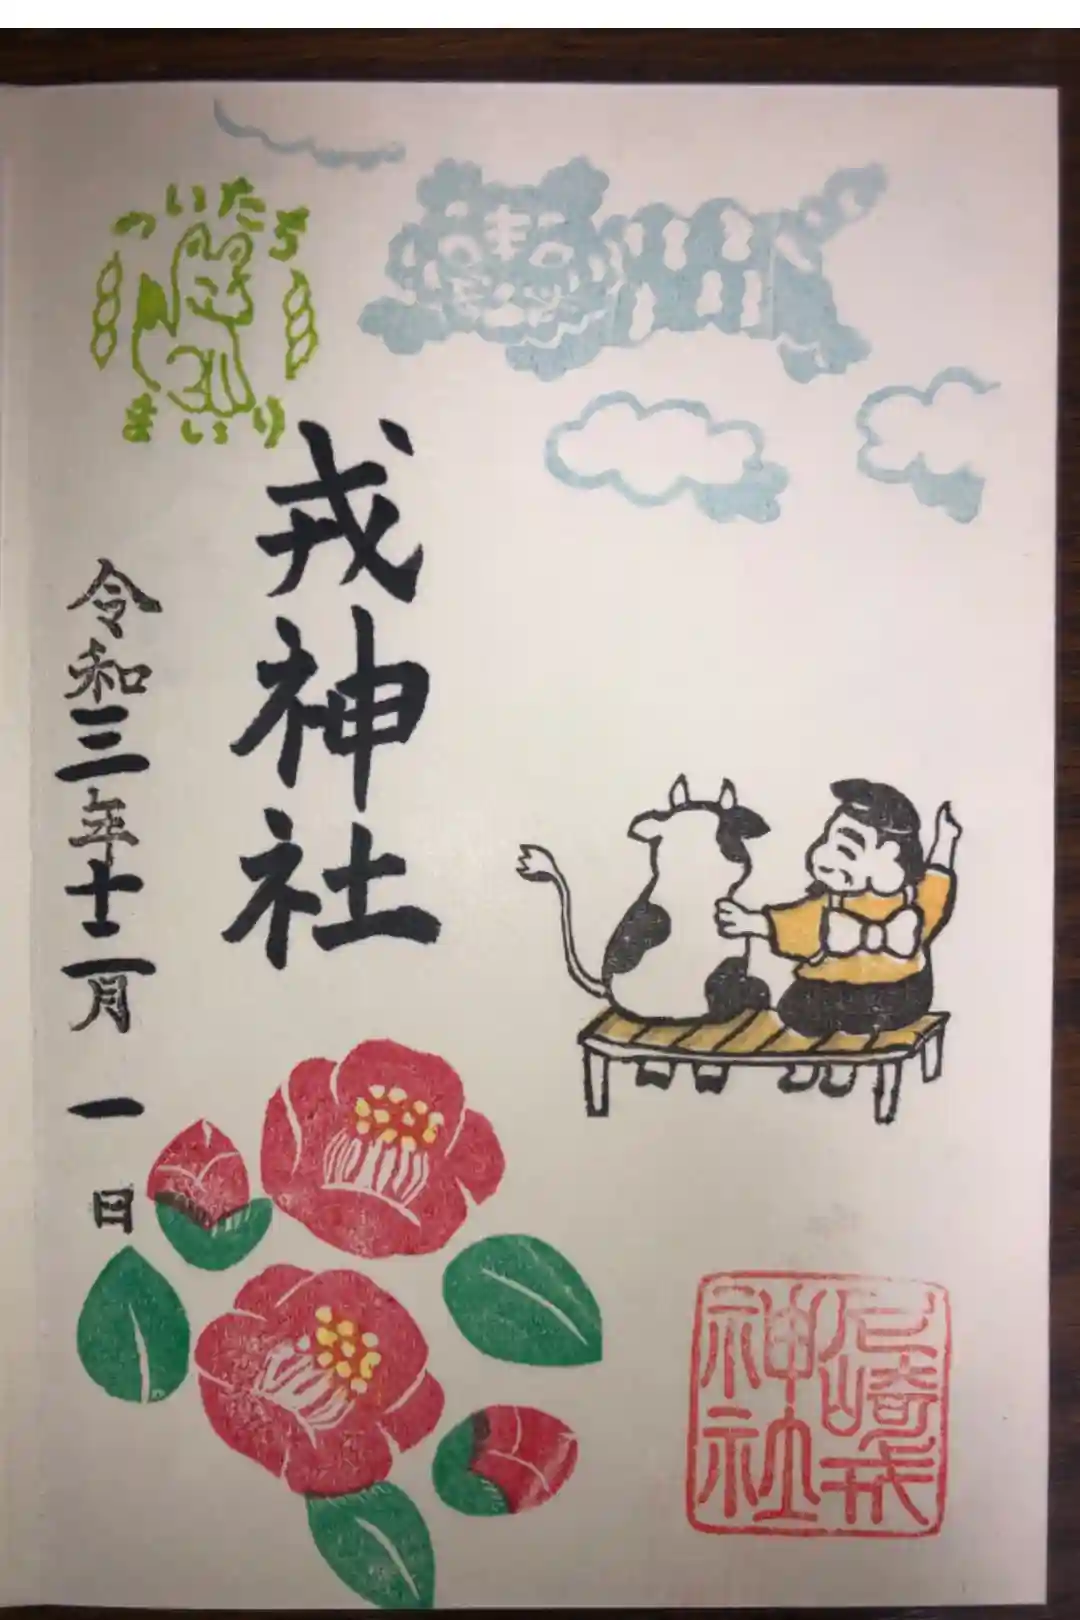 ついたち
まいり
戎神社
令和三年十二月一日
尼崎戎
神社